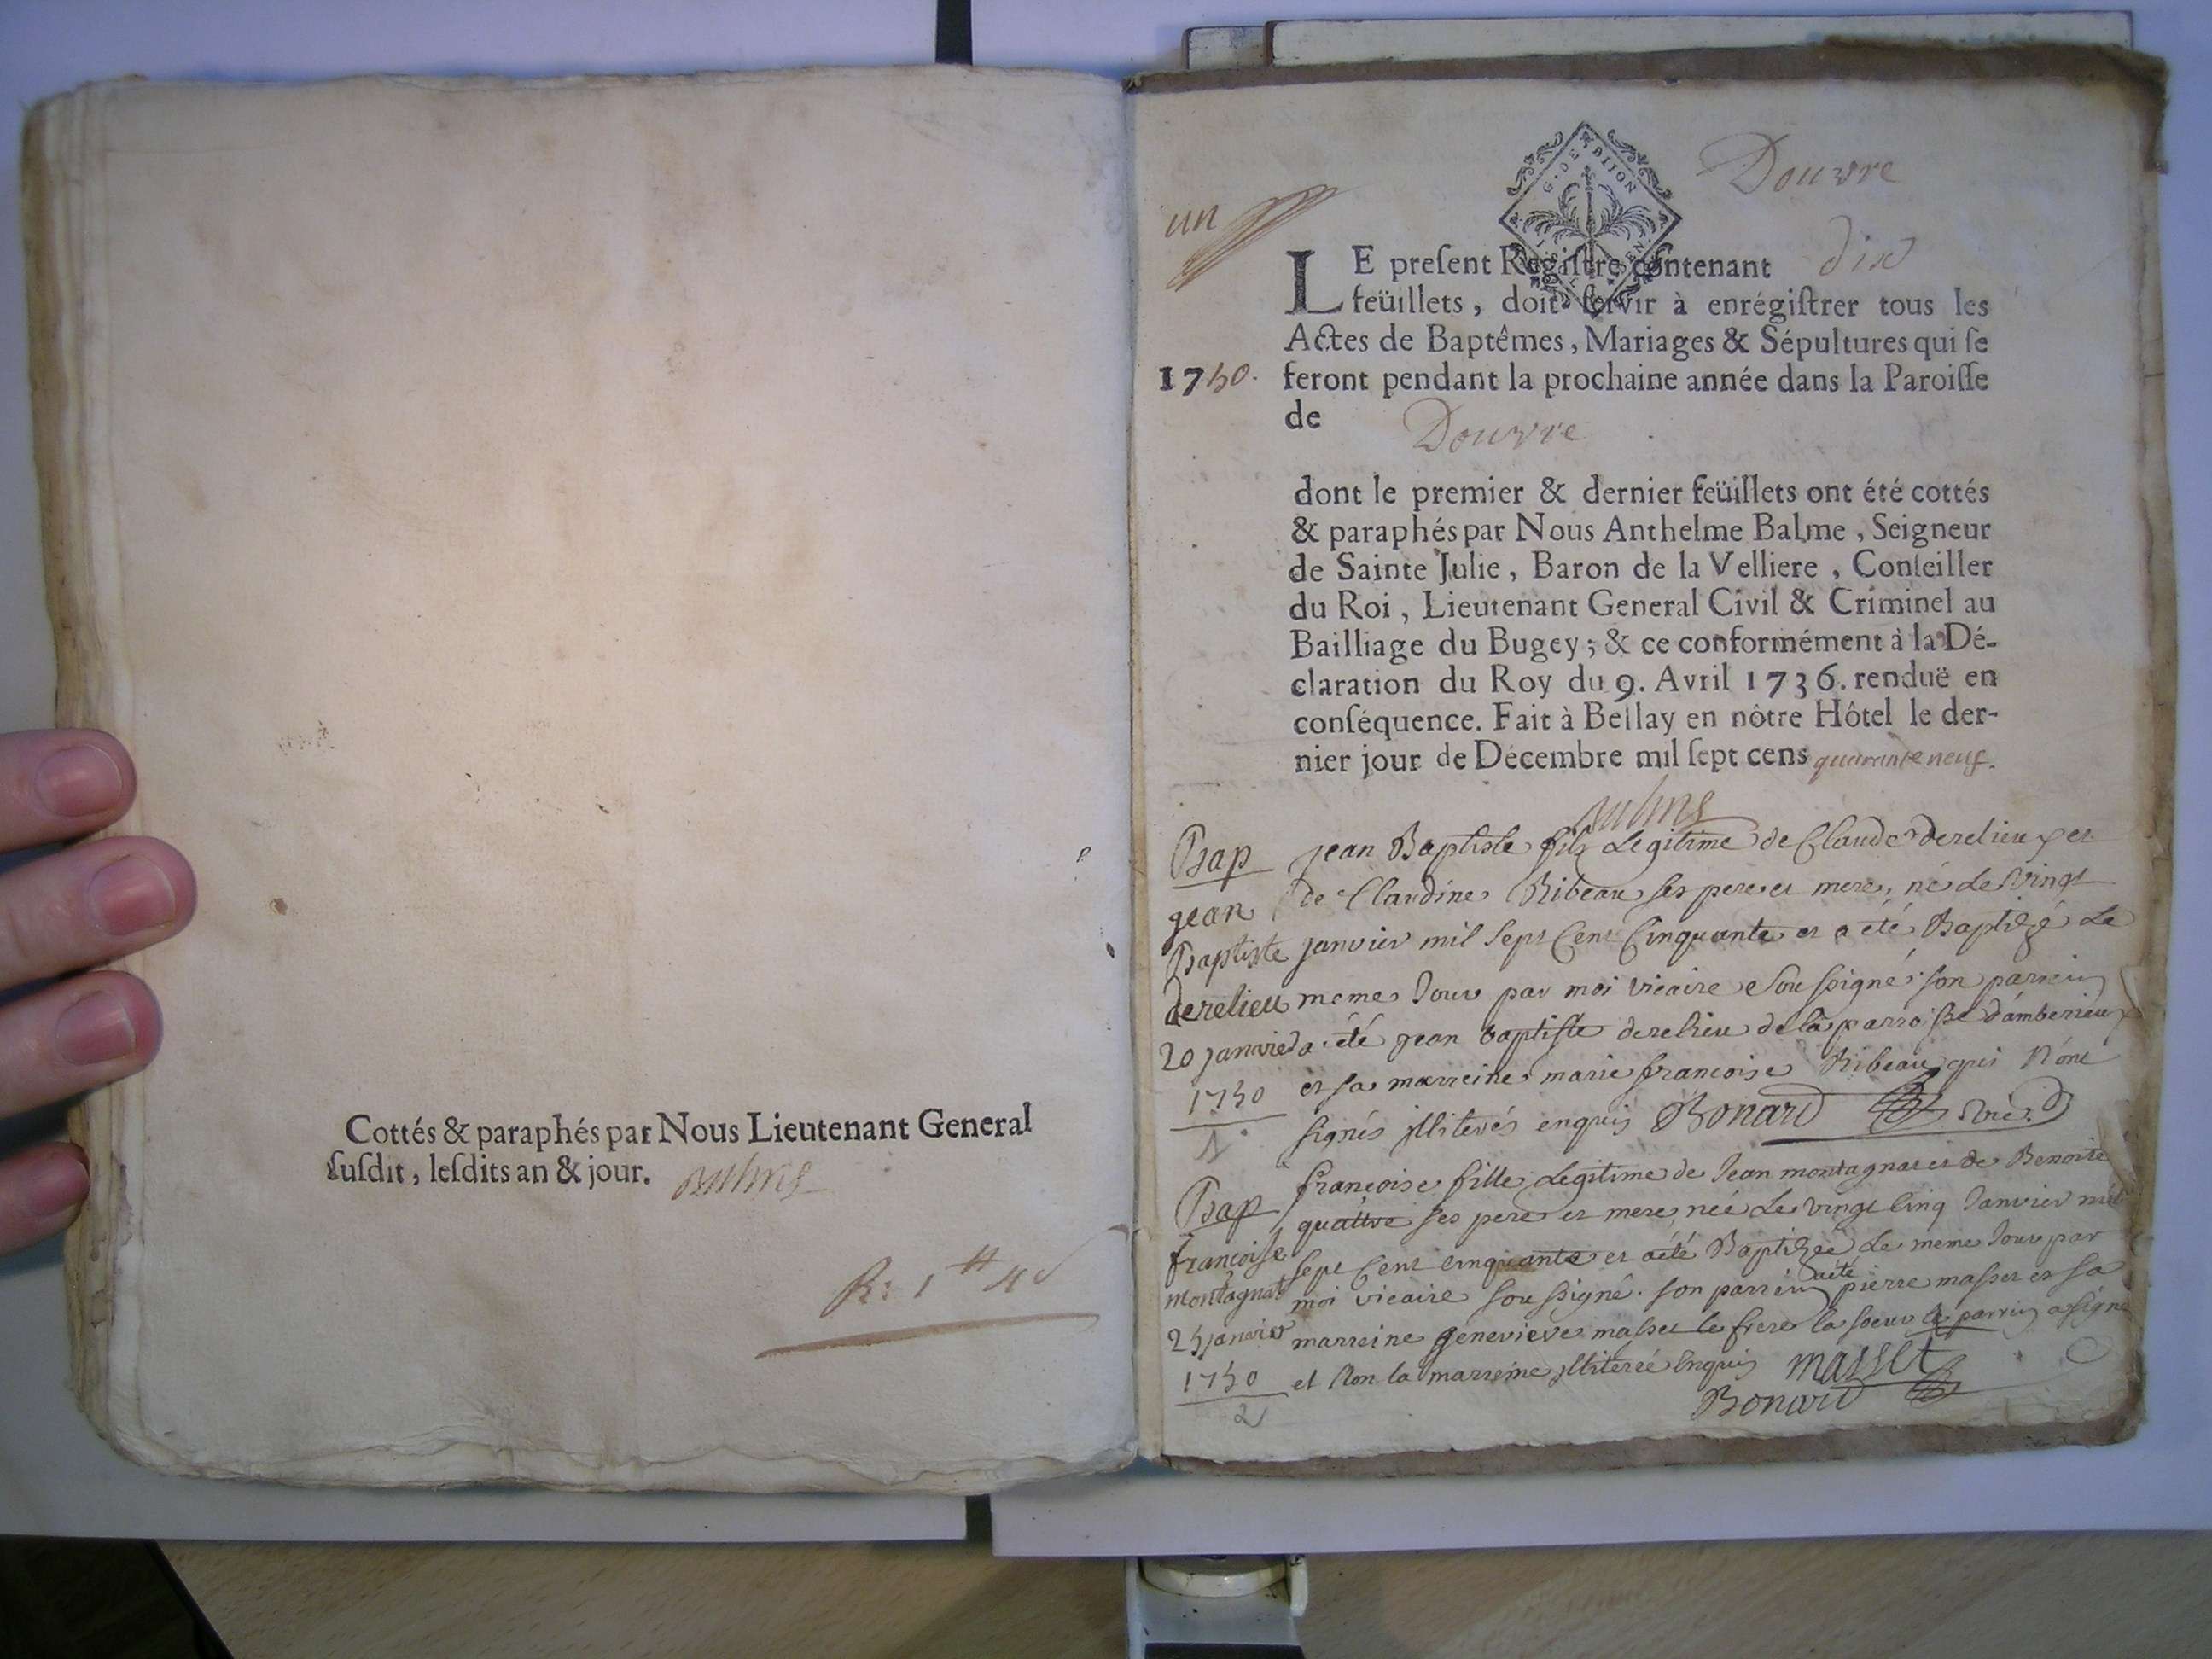 Cottés & paraphés par Nous Lieutenant General
susdit, lesdits an & jour.
R: 1 ₶ 4
G. DE DIJON
Douvre
un
LE present Registre contenant dix
feüillets, doit servir à enrégistrer tous les
Actes de Baptêmes, Mariages & Sépultures qui se
1750. feront pendant la prochaine année dans la Paroisse
de Douvre
dont le premier & dernier feüillets ont été cottés
& paraphés par Nous Anthelme Balme, Seigneur
de Sainte Julie, Baron de la Velliere, Conseiller
du Roi, Lieutenant General Civil & Criminel au
Bailliage du Bugey; & ce conformément à la Dé-
claration du Roy du 9. Avril 1736. renduë en
conséquence. Fait à Bellay en nôtre Hôtel le der-
nier jour de Décembre mil sept cens quarante neuf.
Bap
jean
Baptiste
derelieu
20 janvier
1750
1
jean Baptiste fils Legitime de Claude derelieu et
de Claudine Ribeau ses pere et mere, né Le vingt
janvier mil sept Cent Cinquante et a été Baptizé Le
meme Jour par moi vicaire Soussigné son parrein
a été jean baptiste derelieu de la parroisse d'amberieux
et sa marreine marie francoise Ribeau qui N'ont
signés illiterés enquis Bonard vic.
Bap
francoise
montagnat
25 janvier
1750
2
francoise fille Legitime de Jean montagnat et de Benoite
quattre ses pere et mere née Le vingt Cinq Janvier mil
sept Cent cinquante et a été Baptizée Le meme Jour par
moi vicaire soussigné. son parrein a été pierre masset et sa
marreine genevieve masset le frere la soeur le parrein a signé
et Non la marreine illiterée Enquis masset
Bonard